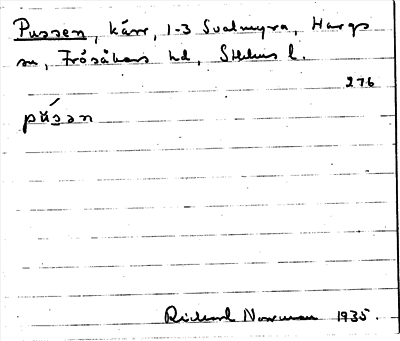 Pussen, kärr, 1-3 Svalmyra, Hargs
sn, Frösåkers hd, Sthlms l.
276
pu̇́sən
Richard Norrman 1935.